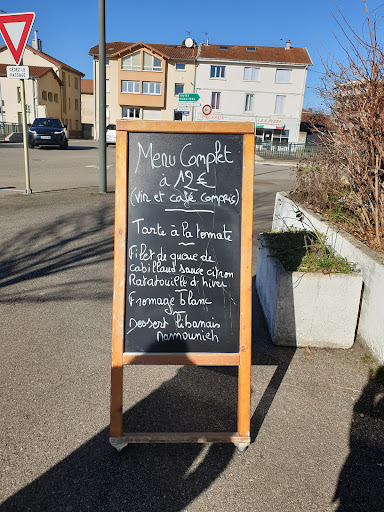 CÉDEZ LE
PASSAGE
Menu Complet
à 12€
(vin et café compris)
Tarte à la tomate
Filet de queue de
cabillaud sauce citron
Ratatouille d'hiver
Fromage blanc
Dessert libanais
Namounieh